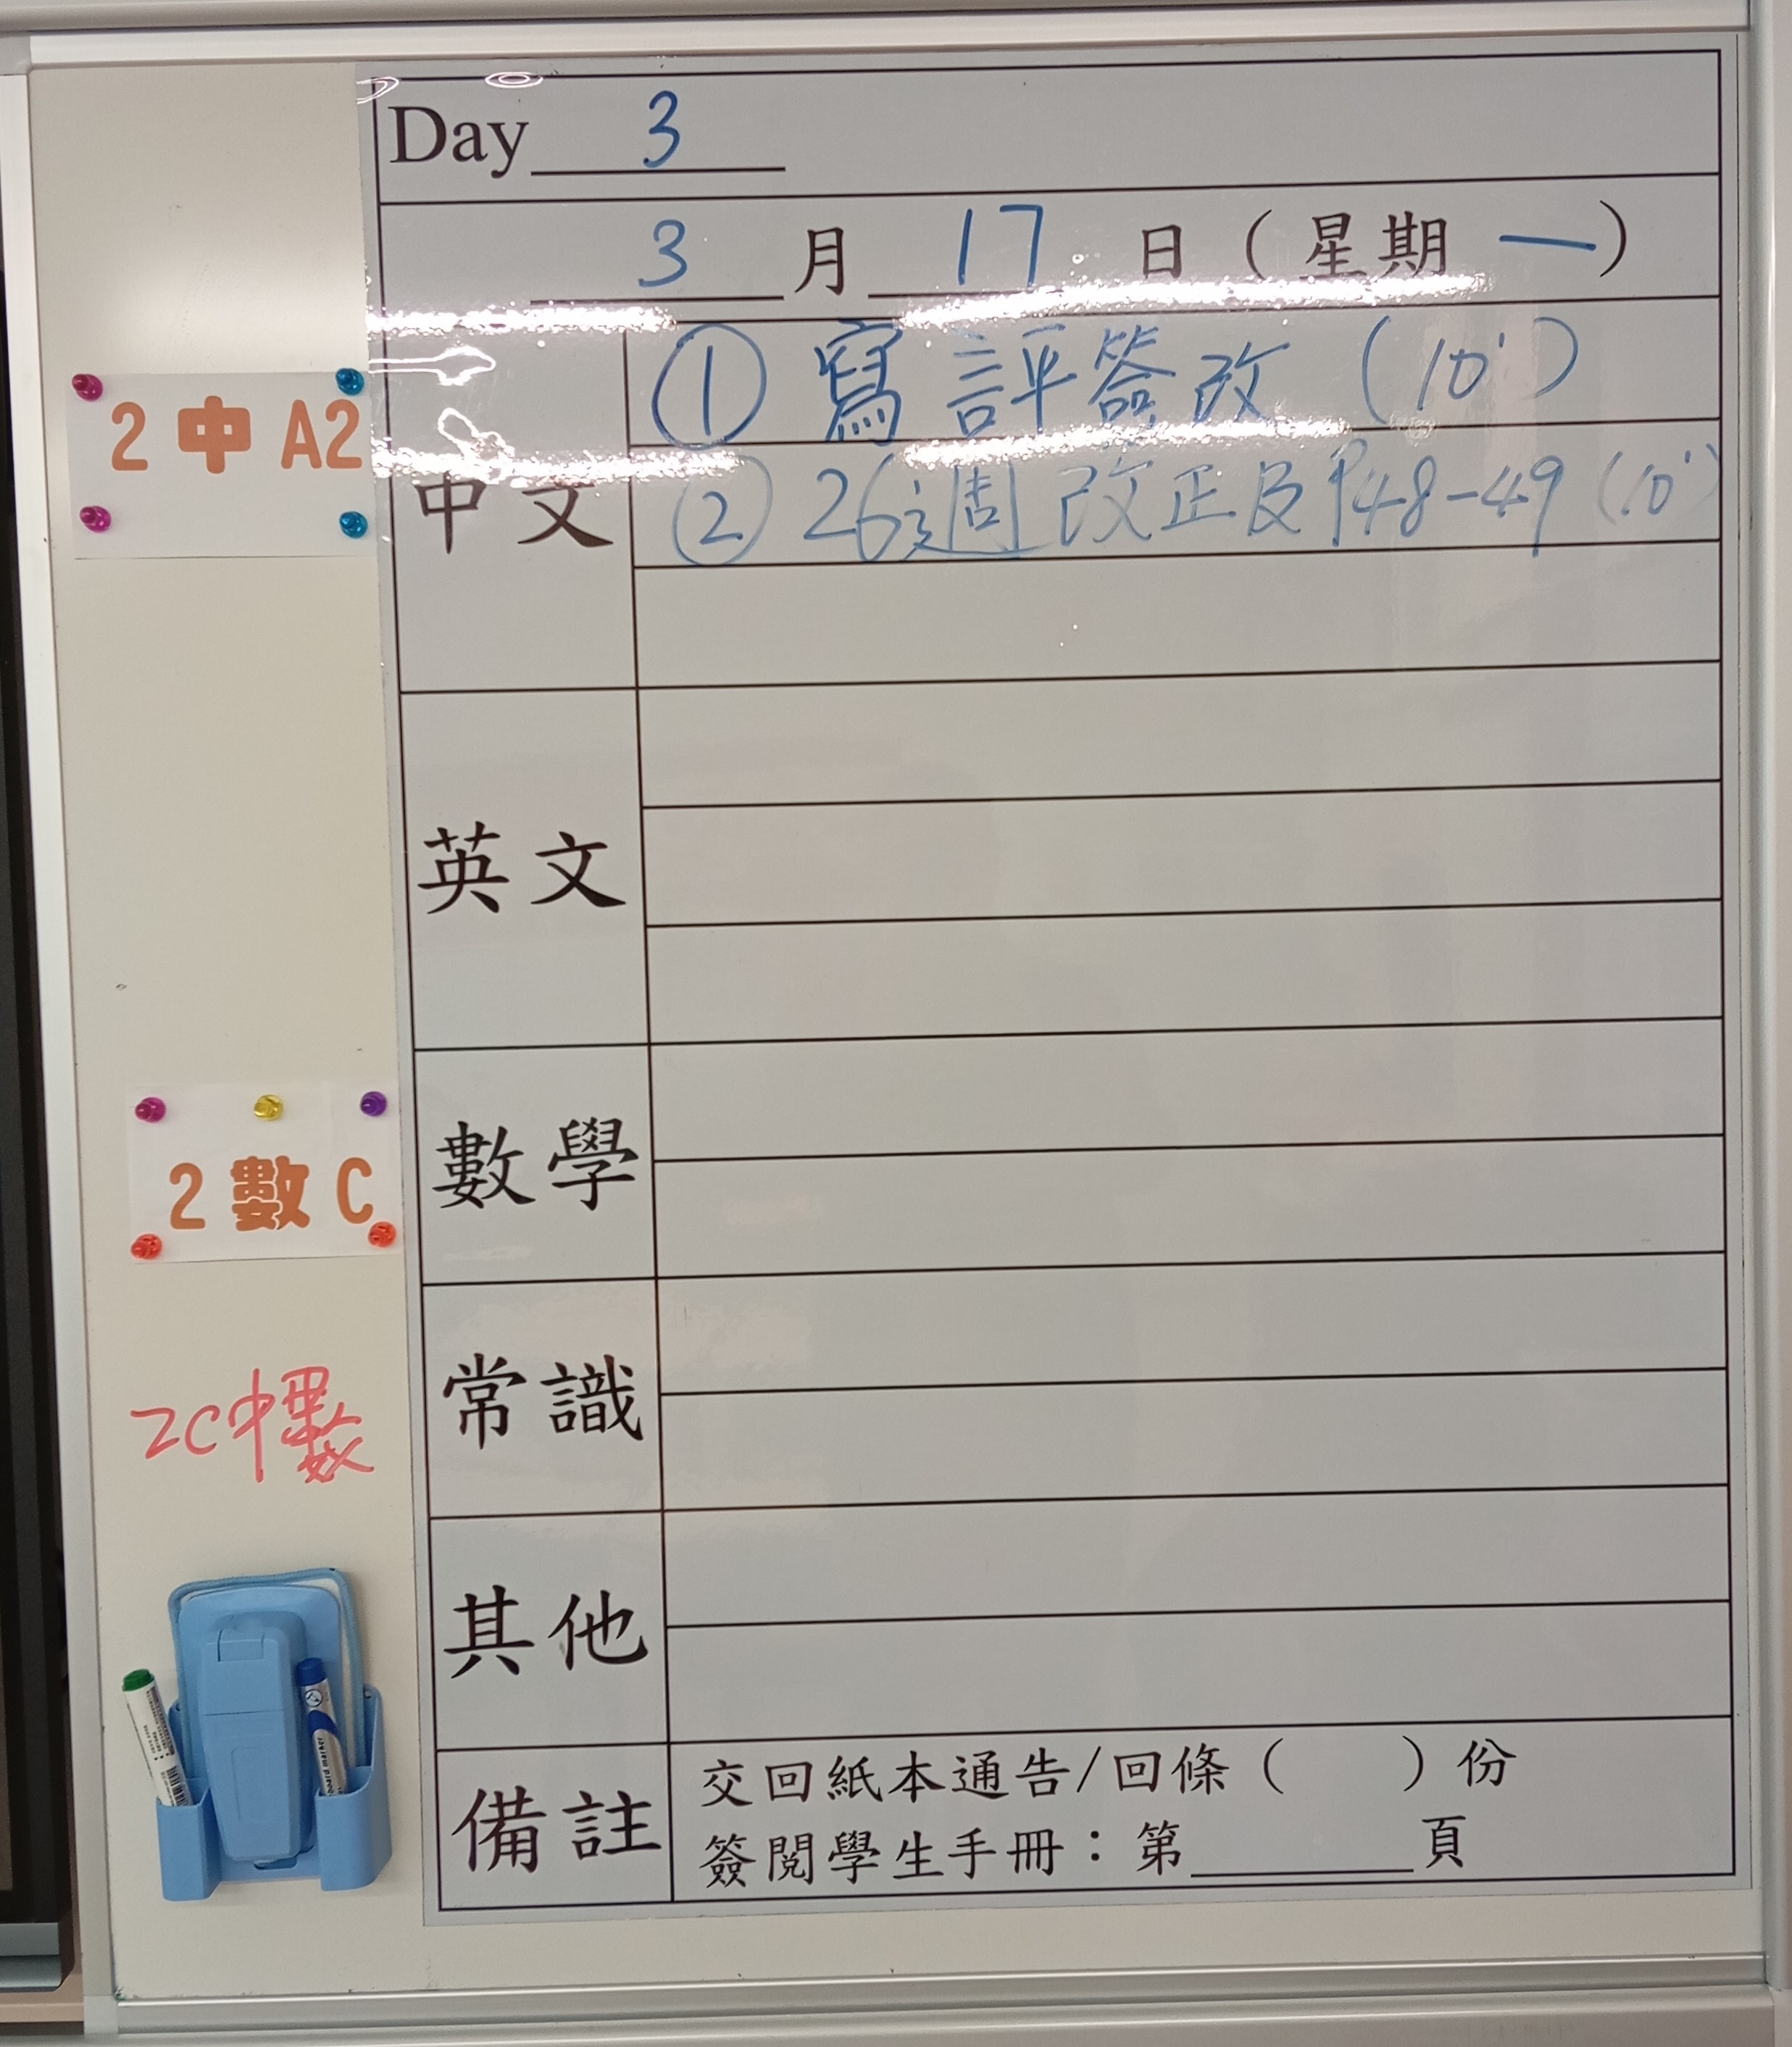 Day 3
3 月 17 日 ( 星期 一 )
中文
① 寫評簽改 (10')
② 26週改正及P48-49 (10')
英文
數學
常識
其他
備註
交回紙本通告/回條 (    ) 份
簽閱學生手冊：第______頁
2 中 A2
2 數 C
2C中數
board marker